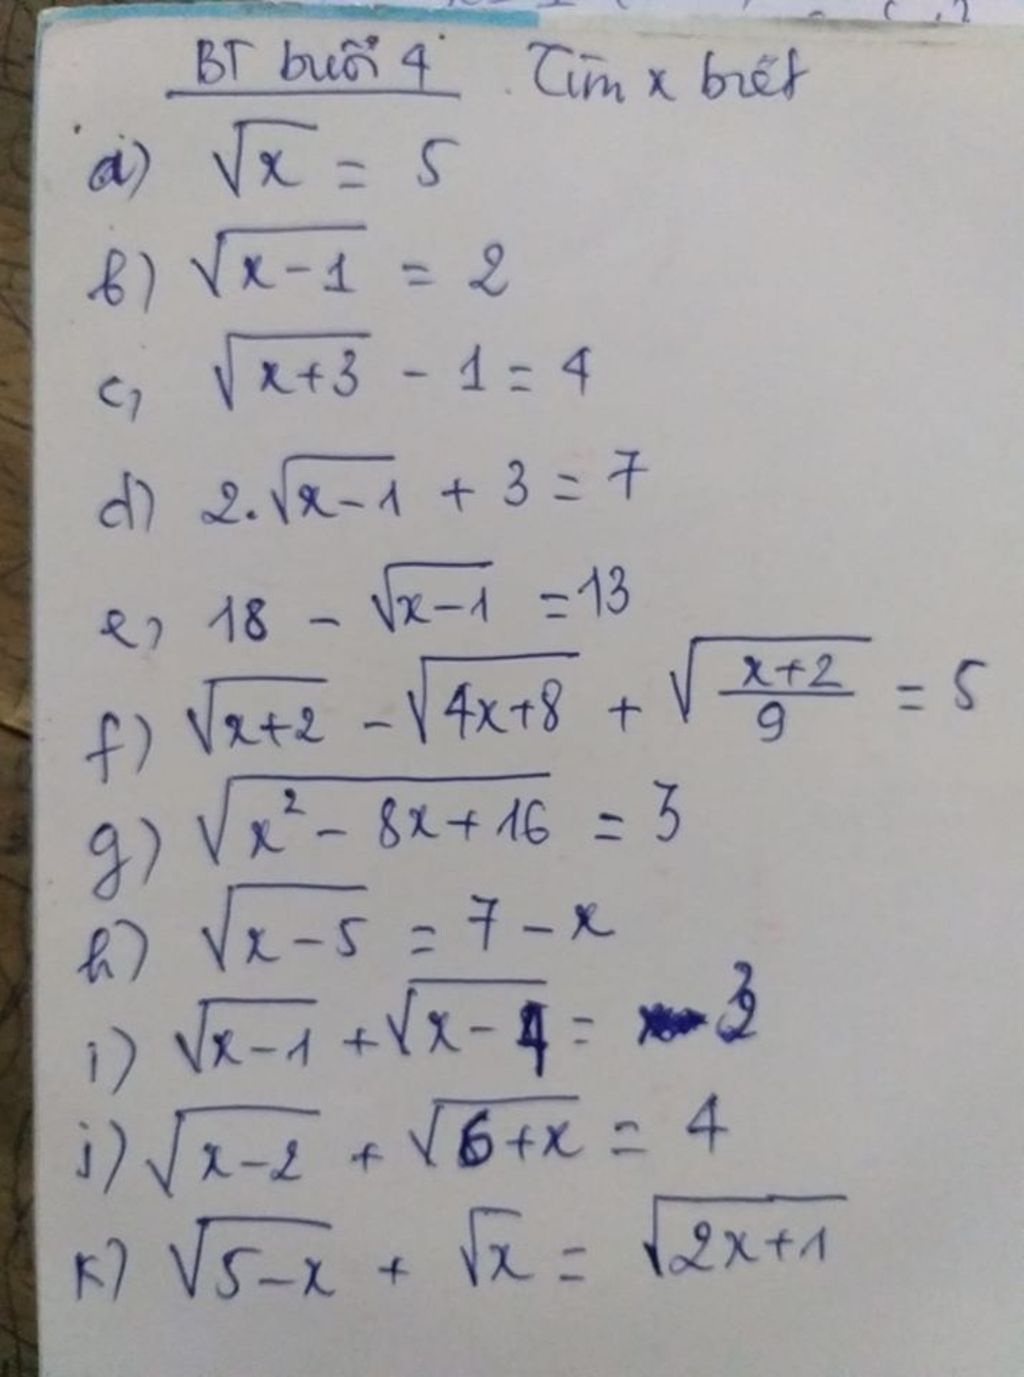 BT buổi 4. Tìm x biết
a) √x = 5
b) √(x-1) = 2
c, √(x+3) - 1 = 4
d) 2.√(x-1) + 3 = 7
e, 18 - √(x-1) = 13
f) √(x+2) - √(4x+8) + √((x+2)/9) = 5
g) √(x² - 8x + 16) = 3
h) √(x-5) = 7 - x
i) √(x-1) + √(x-4) = 3
j) √(x-2) + √(6+x) = 4
k) √(5-x) + √x = √(2x+1)